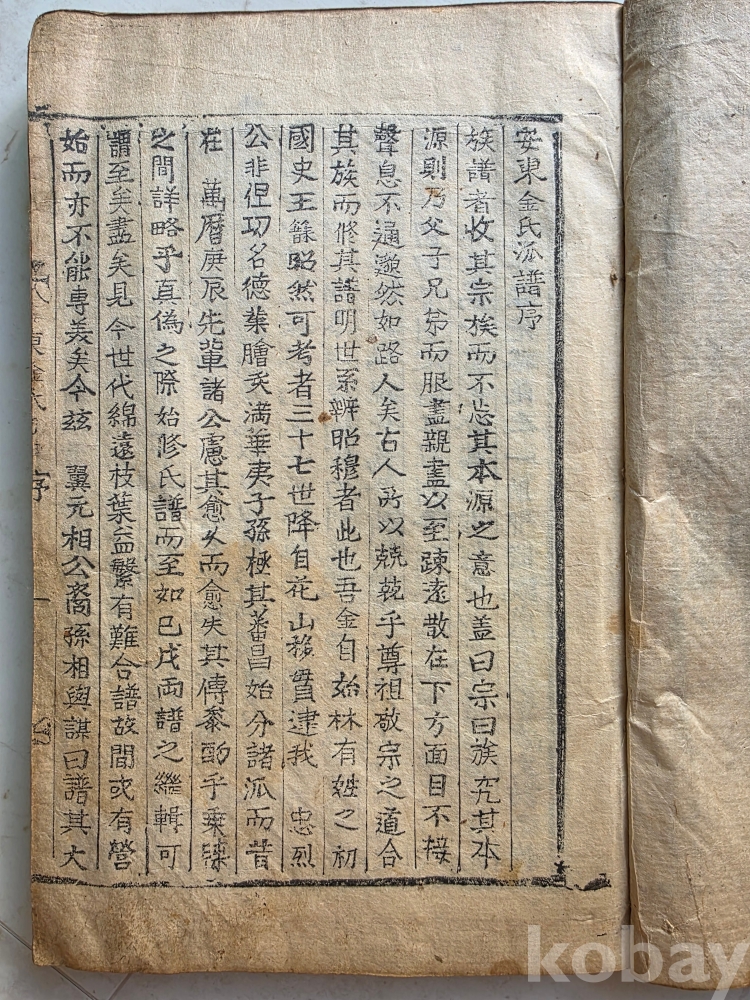 安東金氏派譜序
族譜者收其宗族而不忘其本源之意也盖曰宗曰族究其本
源則乃父子兄弟而服盡親盡以至踈遠散在下方面目不接
聲息不通邈然如路人矣古人所以兢兢乎尊祖敬宗之道合
其族而修其譜明世系辨昭穆者此也吾金自始林有姓之初
國史王錄昭然可考者三十七世降自花山移貫逮我 忠烈
公非但功名德業膾炙滿華夷子孫極其蕃昌始分諸派而昔
在 萬曆庚辰先輩諸公慮其愈久而愈失其傳參酌乎乘
之間詳略乎真偽之際始修氏譜而至如己戌両譜之繼輯可
謂至矣盡矣見今世代綿遠枝葉益繁有難合譜故間或有營
始而亦不能專美矣今玆 翼元相公裔孫相與謀曰譜其大
東金氏 序
一
kobay